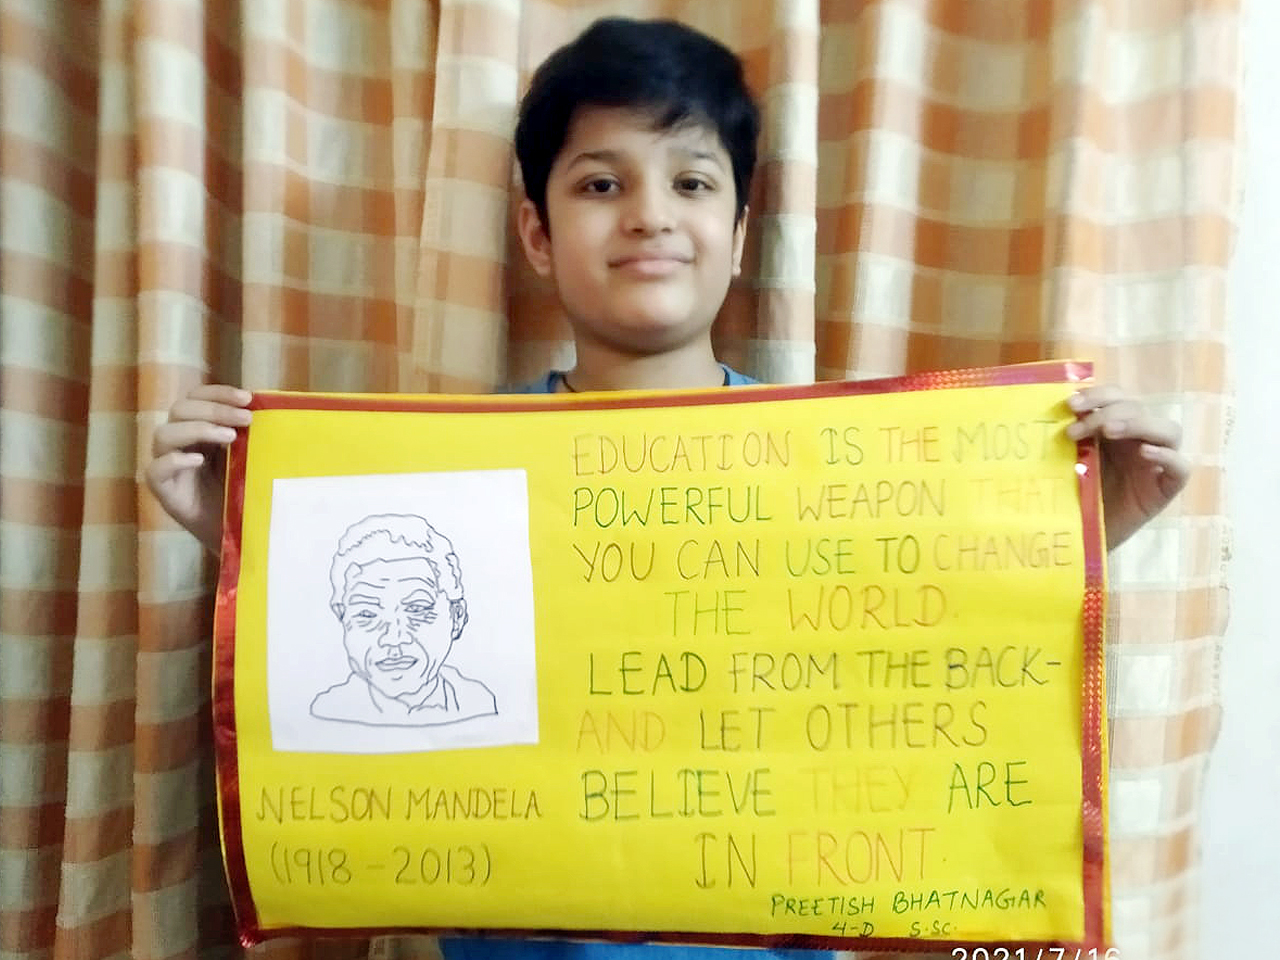 EDUCATION IS THE MOST
POWERFUL WEAPON THAT
YOU CAN USE TO CHANGE
THE WORLD.
LEAD FROM THE BACK-
AND LET OTHERS
BELIEVE THEY ARE
IN FRONT.
NELSON MANDELA
(1918-2013)
PREETISH BHATNAGAR
4-D S.SC.
2021/7/16